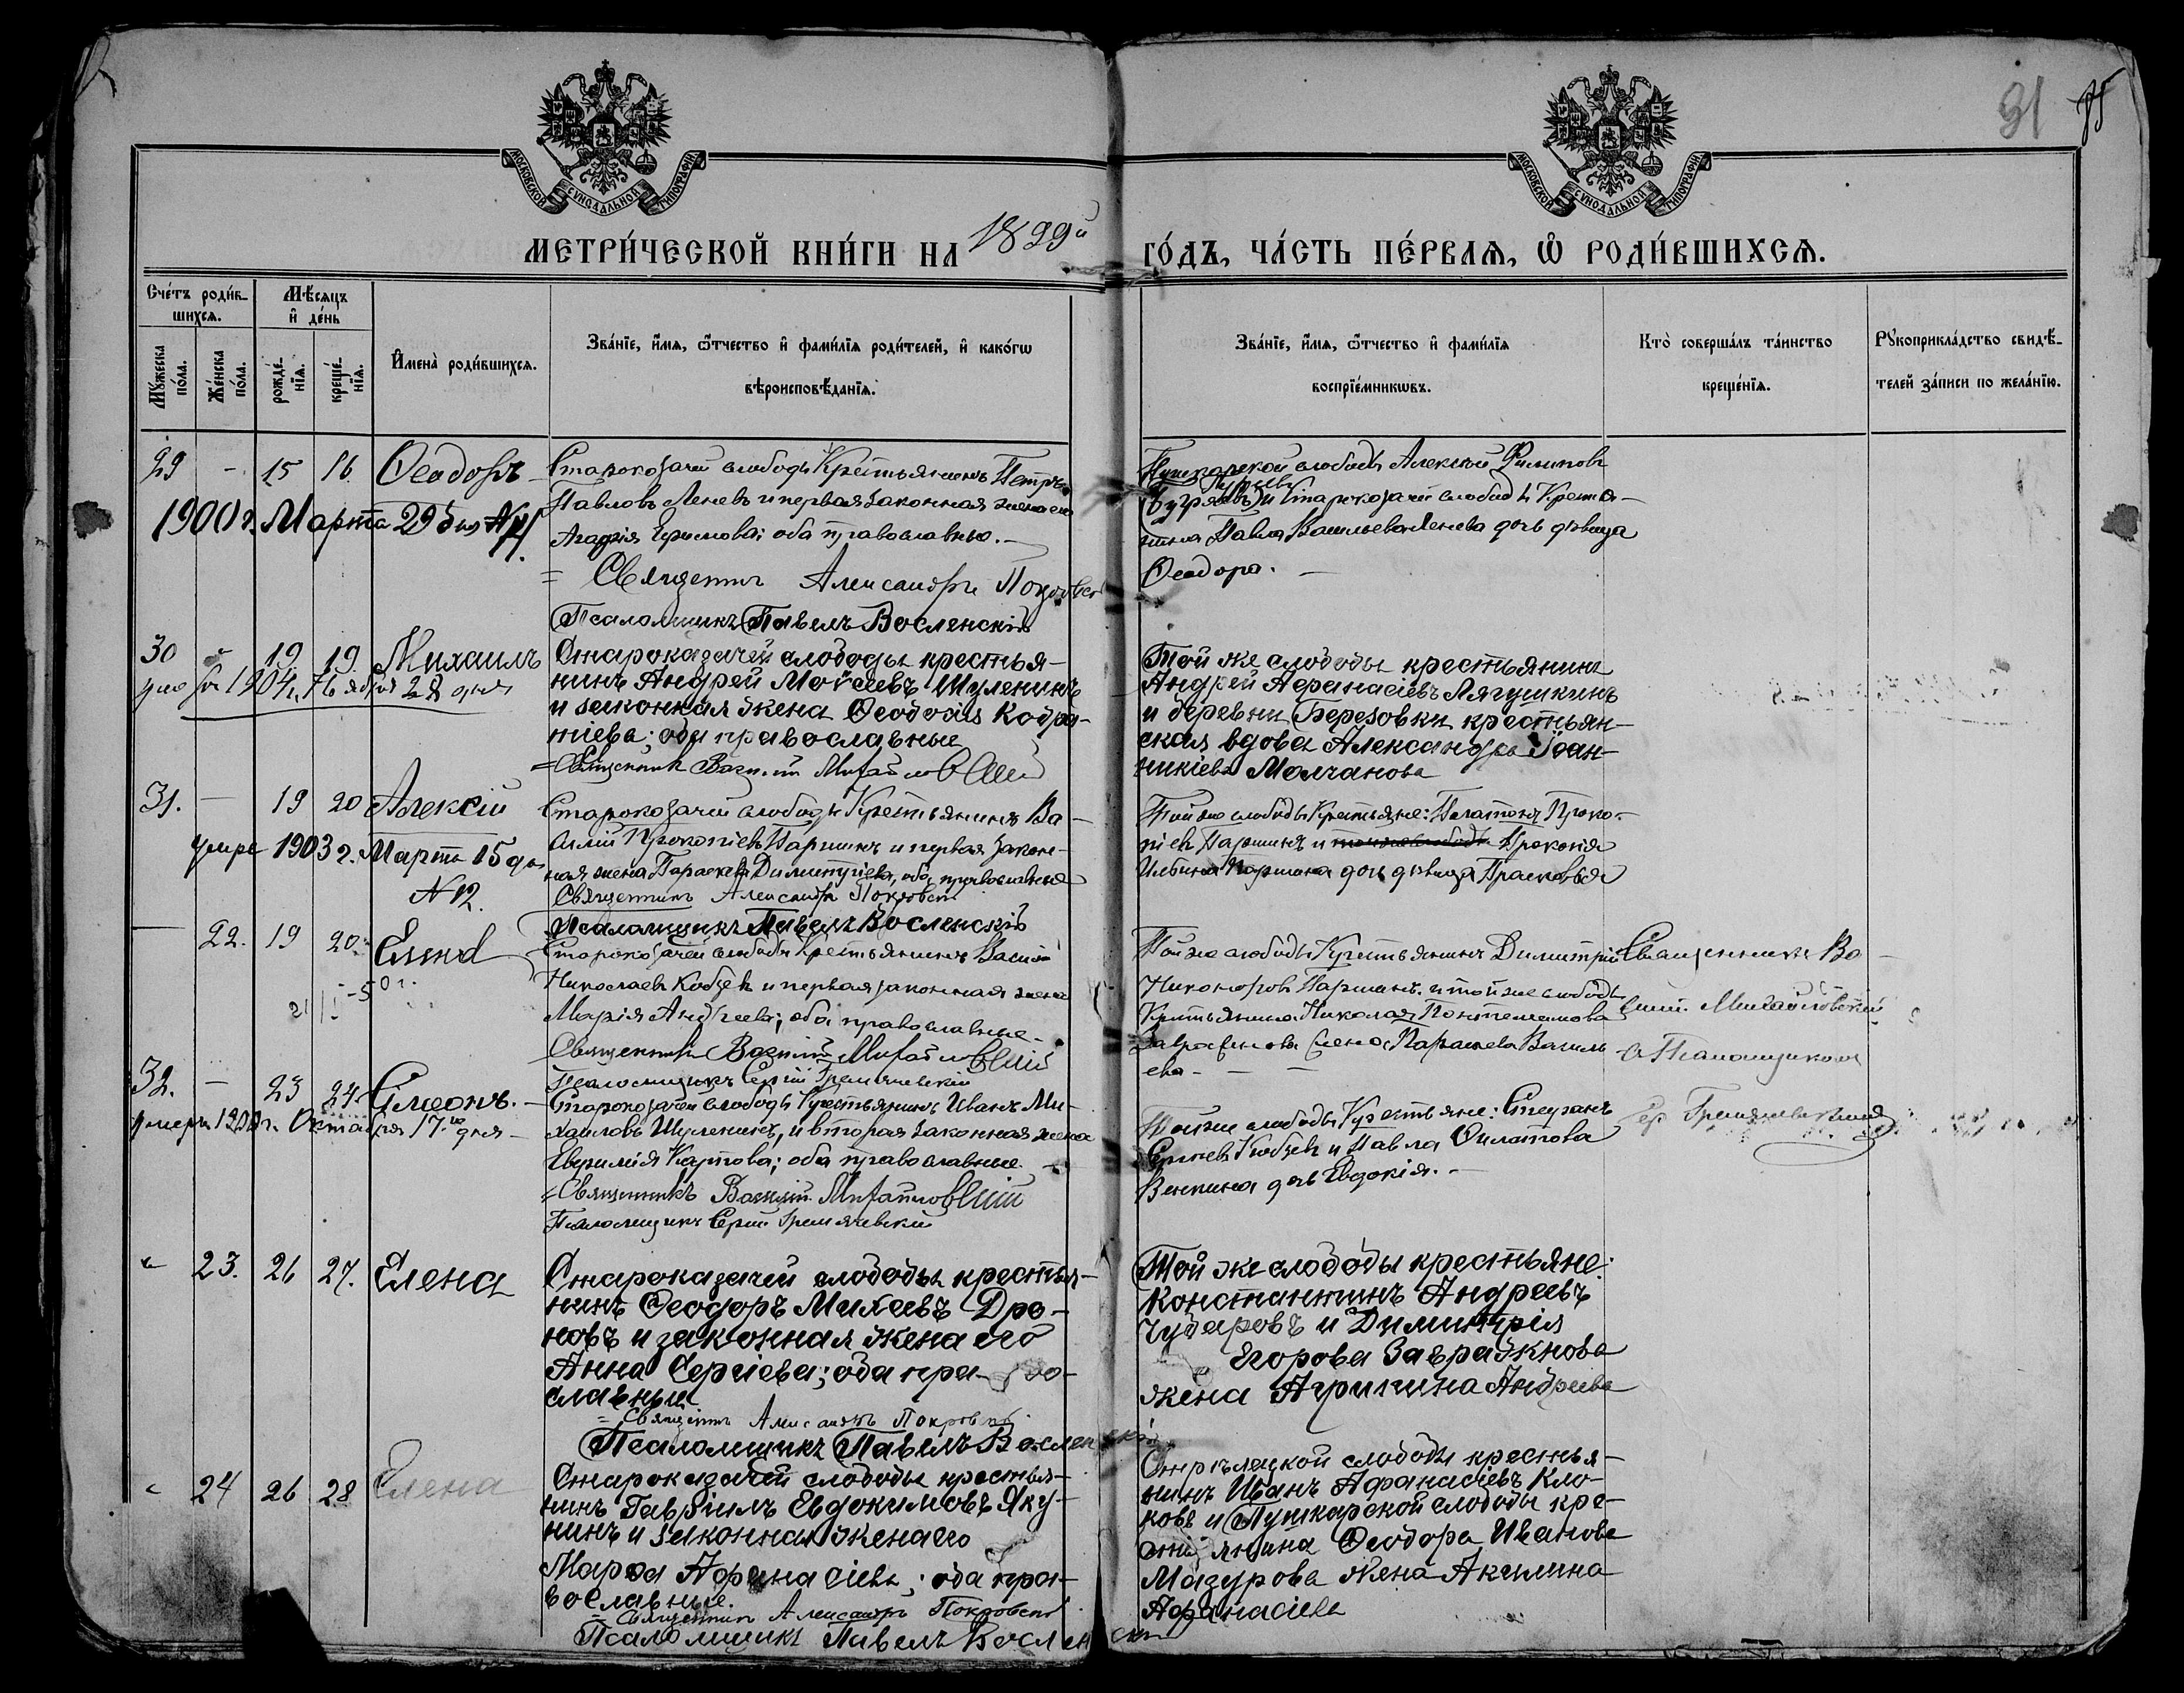 91 85
МОСКОВСКОЙ СѴНОДАЛЬНОЙ ТИПОГРАФІИ
МОСКОВСКОЙ СѴНОДАЛЬНОЙ ТИПОГРАФІИ
МЕТРИ́ЧЕСКОЙ КНИ́ГИ НА 1899й ГО́ДЪ, ЧА́СТЬ ПЕ́РВАѦ, Ѡ РОДИ́ВШИХСѦ.
Счетъ родив-
шихсѧ.
Мѣсѧцъ
и день
Мꙋжеска
пола.
Женска
пола.
рожде-
нїѧ.
креще-
нїѧ.
Имена родившихсѧ.
Званїе, имѧ, ѿчество и фамилїѧ родителей, и какогѡ
вѣроисповѣданїѧ.
Званїе, имѧ, ѿчество и фамилїѧ
воспрїемникѡвъ.
Кто совершалъ таинство
крещенїѧ.
Рꙋкоприкладство свидѣ-
телей записи по желанїю.
29 - 15 16 Ѳеодоръ
1900 г. Марта 29 дня №
Староказачей слободы Крестьянинъ Петръ
Павловъ Леневъ и первая законная жена его
Агафія Ефимова; оба православные.
Священникъ Александръ Покровскій
Псаломщикъ Павелъ Восленскій
Пушкарской слободы Алексѣй Филиповъ
и Староказачей слободы Крестья-
нина Павла Васильева Ленева дочь дѣвица
Ѳеодора.
30 19 19 Михаилъ
1904 г. 28 дня
Староказачей слободы крестья-
нинъ Андрей Моѵсеевъ Шуленинъ
и законная жена Ѳеодосія Кодра-
тіева; оба православные
Священникъ Василій Михайловскій
Той же слободы крестьянинъ
Андрей Аѳанасіевъ Лягушкинъ
и деревни Березовки крестьян-
ская вдова Александра Іоан-
никіева Молчанова
31. - 19 20 Алексій
умре 1903 г. Марта 15 дн
№ 12.
Староказачей слободы Крестьянинъ Ва-
силій Прокопіевъ Паршинъ и первая закон-
ная жена Параскева Димитріева, оба православные
Священникъ Александръ Покровскій
Псаломщикъ Павелъ Восленскій
Той же слободы Крестьяне: Платонъ Проко-
піевъ Паршинъ и Прокопія
Ильина Паршина дочь дѣвица Прасковья
- 22. 19 20. Елена
Староказачей слободы Крестьянинъ Василій
Николаевъ Кобзевъ и первая законная жена
Марія Андреева; оба православные.
Священникъ Василій Михайловскій
Псаломщикъ Сергій Гремячевскій
Той же слободы Крестьянинъ Димитрій
Никоноровъ Паршинъ и той же слободы
Крестьянина Николая Понтелемонова
жена Параскева Василь-
ева
Священникъ Ва-
силій Михайловскій
съ Псаломщикомъ
Сер Гремячевскимъ
32. - 23 24. Сѵмеонъ.
умеръ Октября 17го дня
Староказачей слободы Крестьянинъ Иванъ Ми-
хаиловъ Шуленинъ, и вторая законная жена
Евфимія Карпова; оба православные.
Священникъ Василій Михайловскій
Псаломщикъ Сергій Гремячевскій
Той же слободы Крестьяне: Стефанъ
Сергіевъ Кобзевъ и Павла Филатова
дочь Евдокія.
" 23. 26 27. Елена
Староказачей слободы крестья-
нинъ Ѳеодоръ Михеевъ Дро-
новъ и законная жена его
Анна Сергіева; оба право-
славные
Священникъ Александръ Покровскій
Псаломщикъ Павелъ Восленскій
Той же слободы крестьяне:
Константинъ Андреевъ
Чубаровъ и Димитрія
Егорова
жена Агрипина Андреева
" 24 26 28 Елена
Староказачей слободы крестья-
нинъ Гавріилъ Евдокимовъ Яку-
нинъ и законная жена его
Марѳа Аѳанасіева; оба пра-
вославные.
Священникъ Александръ Покровскій
Псаломщикъ Павелъ Восленскій
Стрѣлецкой слободы крестья-
нинъ Иванъ Аѳанасіевъ Кло-
ковъ и Пушкарской слободы кре-
стьянина Ѳеодора Иванова
Мазурова жена Акилина
Аѳанасіева